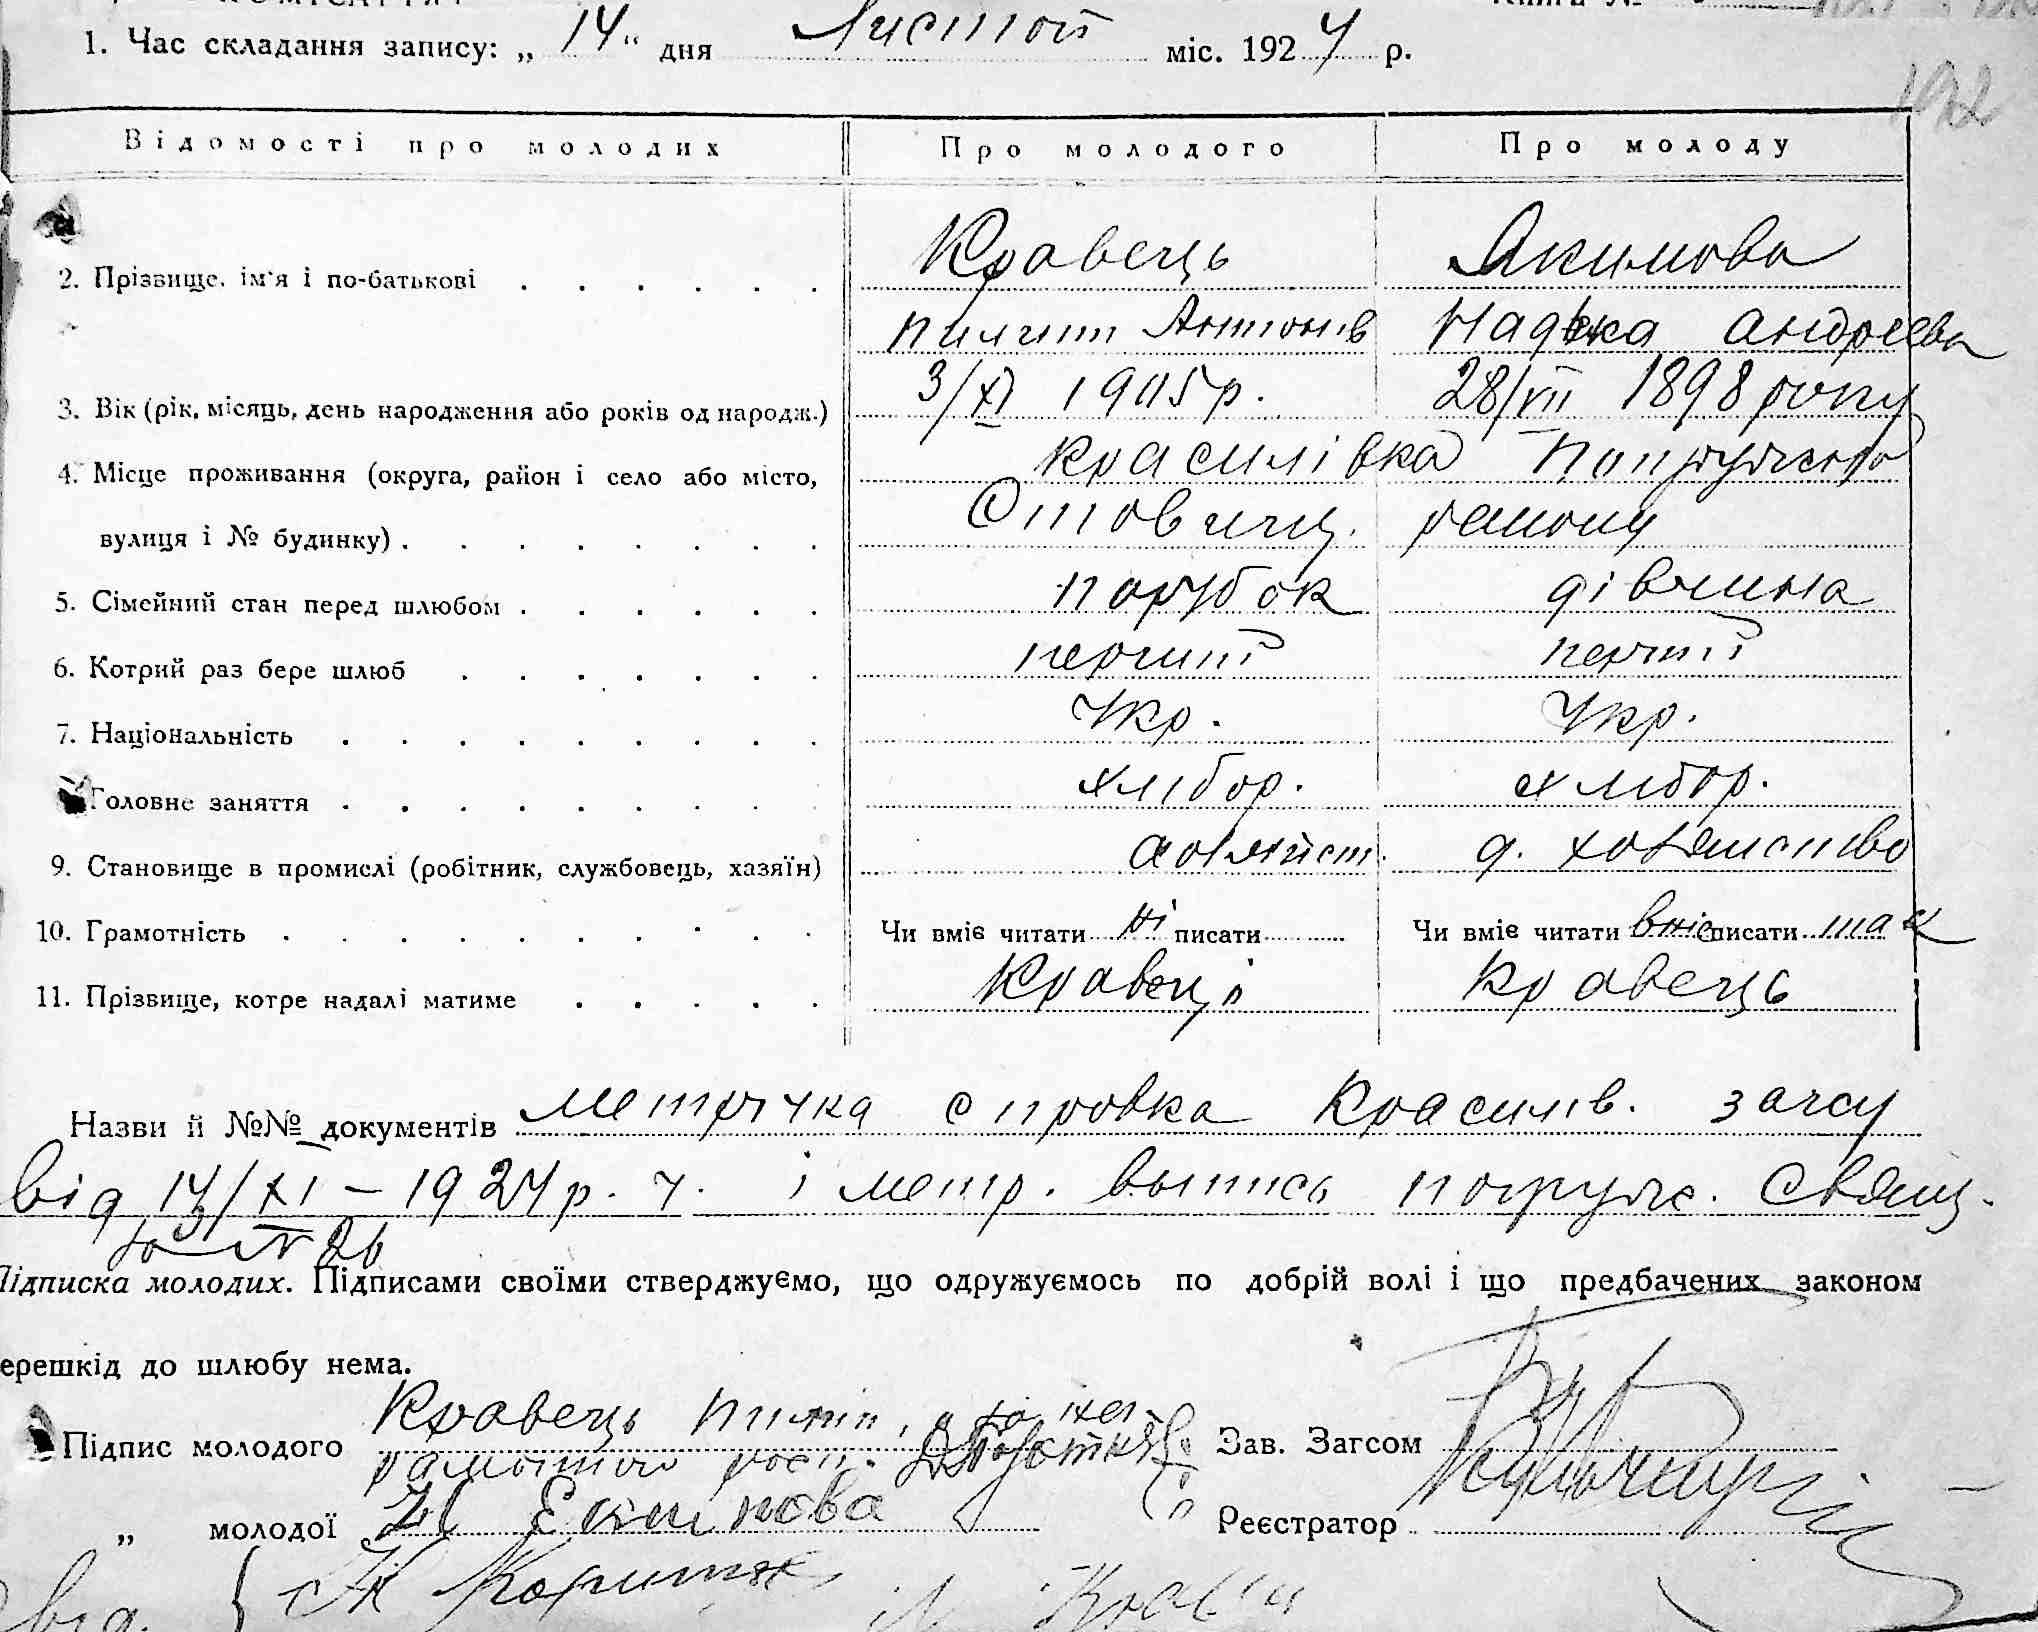 1. Час складання запису: „ 14 “ дня Листоп міс. 1924 р.
192
Відомості про молодих Про молодого Про молоду
2. Прізвище, ім'я і по-батькові Кравець Якимова
Пилип Антонів Надька Андреєва
3. Вік (рік, місяць, день народження або років од народж.) 3/XI 1905 р. 28/VII 1898 року
4. Місце проживання (округа, район і село або місто, Красилівка
вулиця і № будинку) Ставищ. району
5. Сімейний стан перед шлюбом парубок дівчина
6. Котрий раз бере шлюб перший перший
7. Національність Укр. Укр.
Головне заняття хлібор. хлібор.
9. Становище в промислі (робітник, службовець, хазяїн) д. хозяйство
10. Грамотність Чи вміє читати ні писати Чи вміє читати вміє писати так
11. Прізвище, котре надалі матиме Кравець Кравець
Назви й №№ документів метрична справка Красилів. загсу
від 14/XI – 1924 р. ч. і метр. выпись погруж. Свящ.
Підписка молодих. Підписами своїми стверджуємо, що одружуємось по добрій волі і що предбачених законом
ерешкід до шлюбу нема.
Підпис молодого Кравець Пилип, а за не- Зав. Загсом
рамотного росп.
„ молодої Н Екимова Реєстратор
від. { К Коритяк